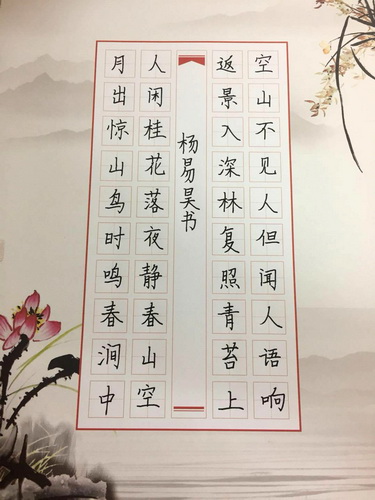 空山不见人但闻人语响
返景入深林复照青苔上
杨易昊书
人闲桂花落夜静春山空
月出惊山鸟时鸣春涧中